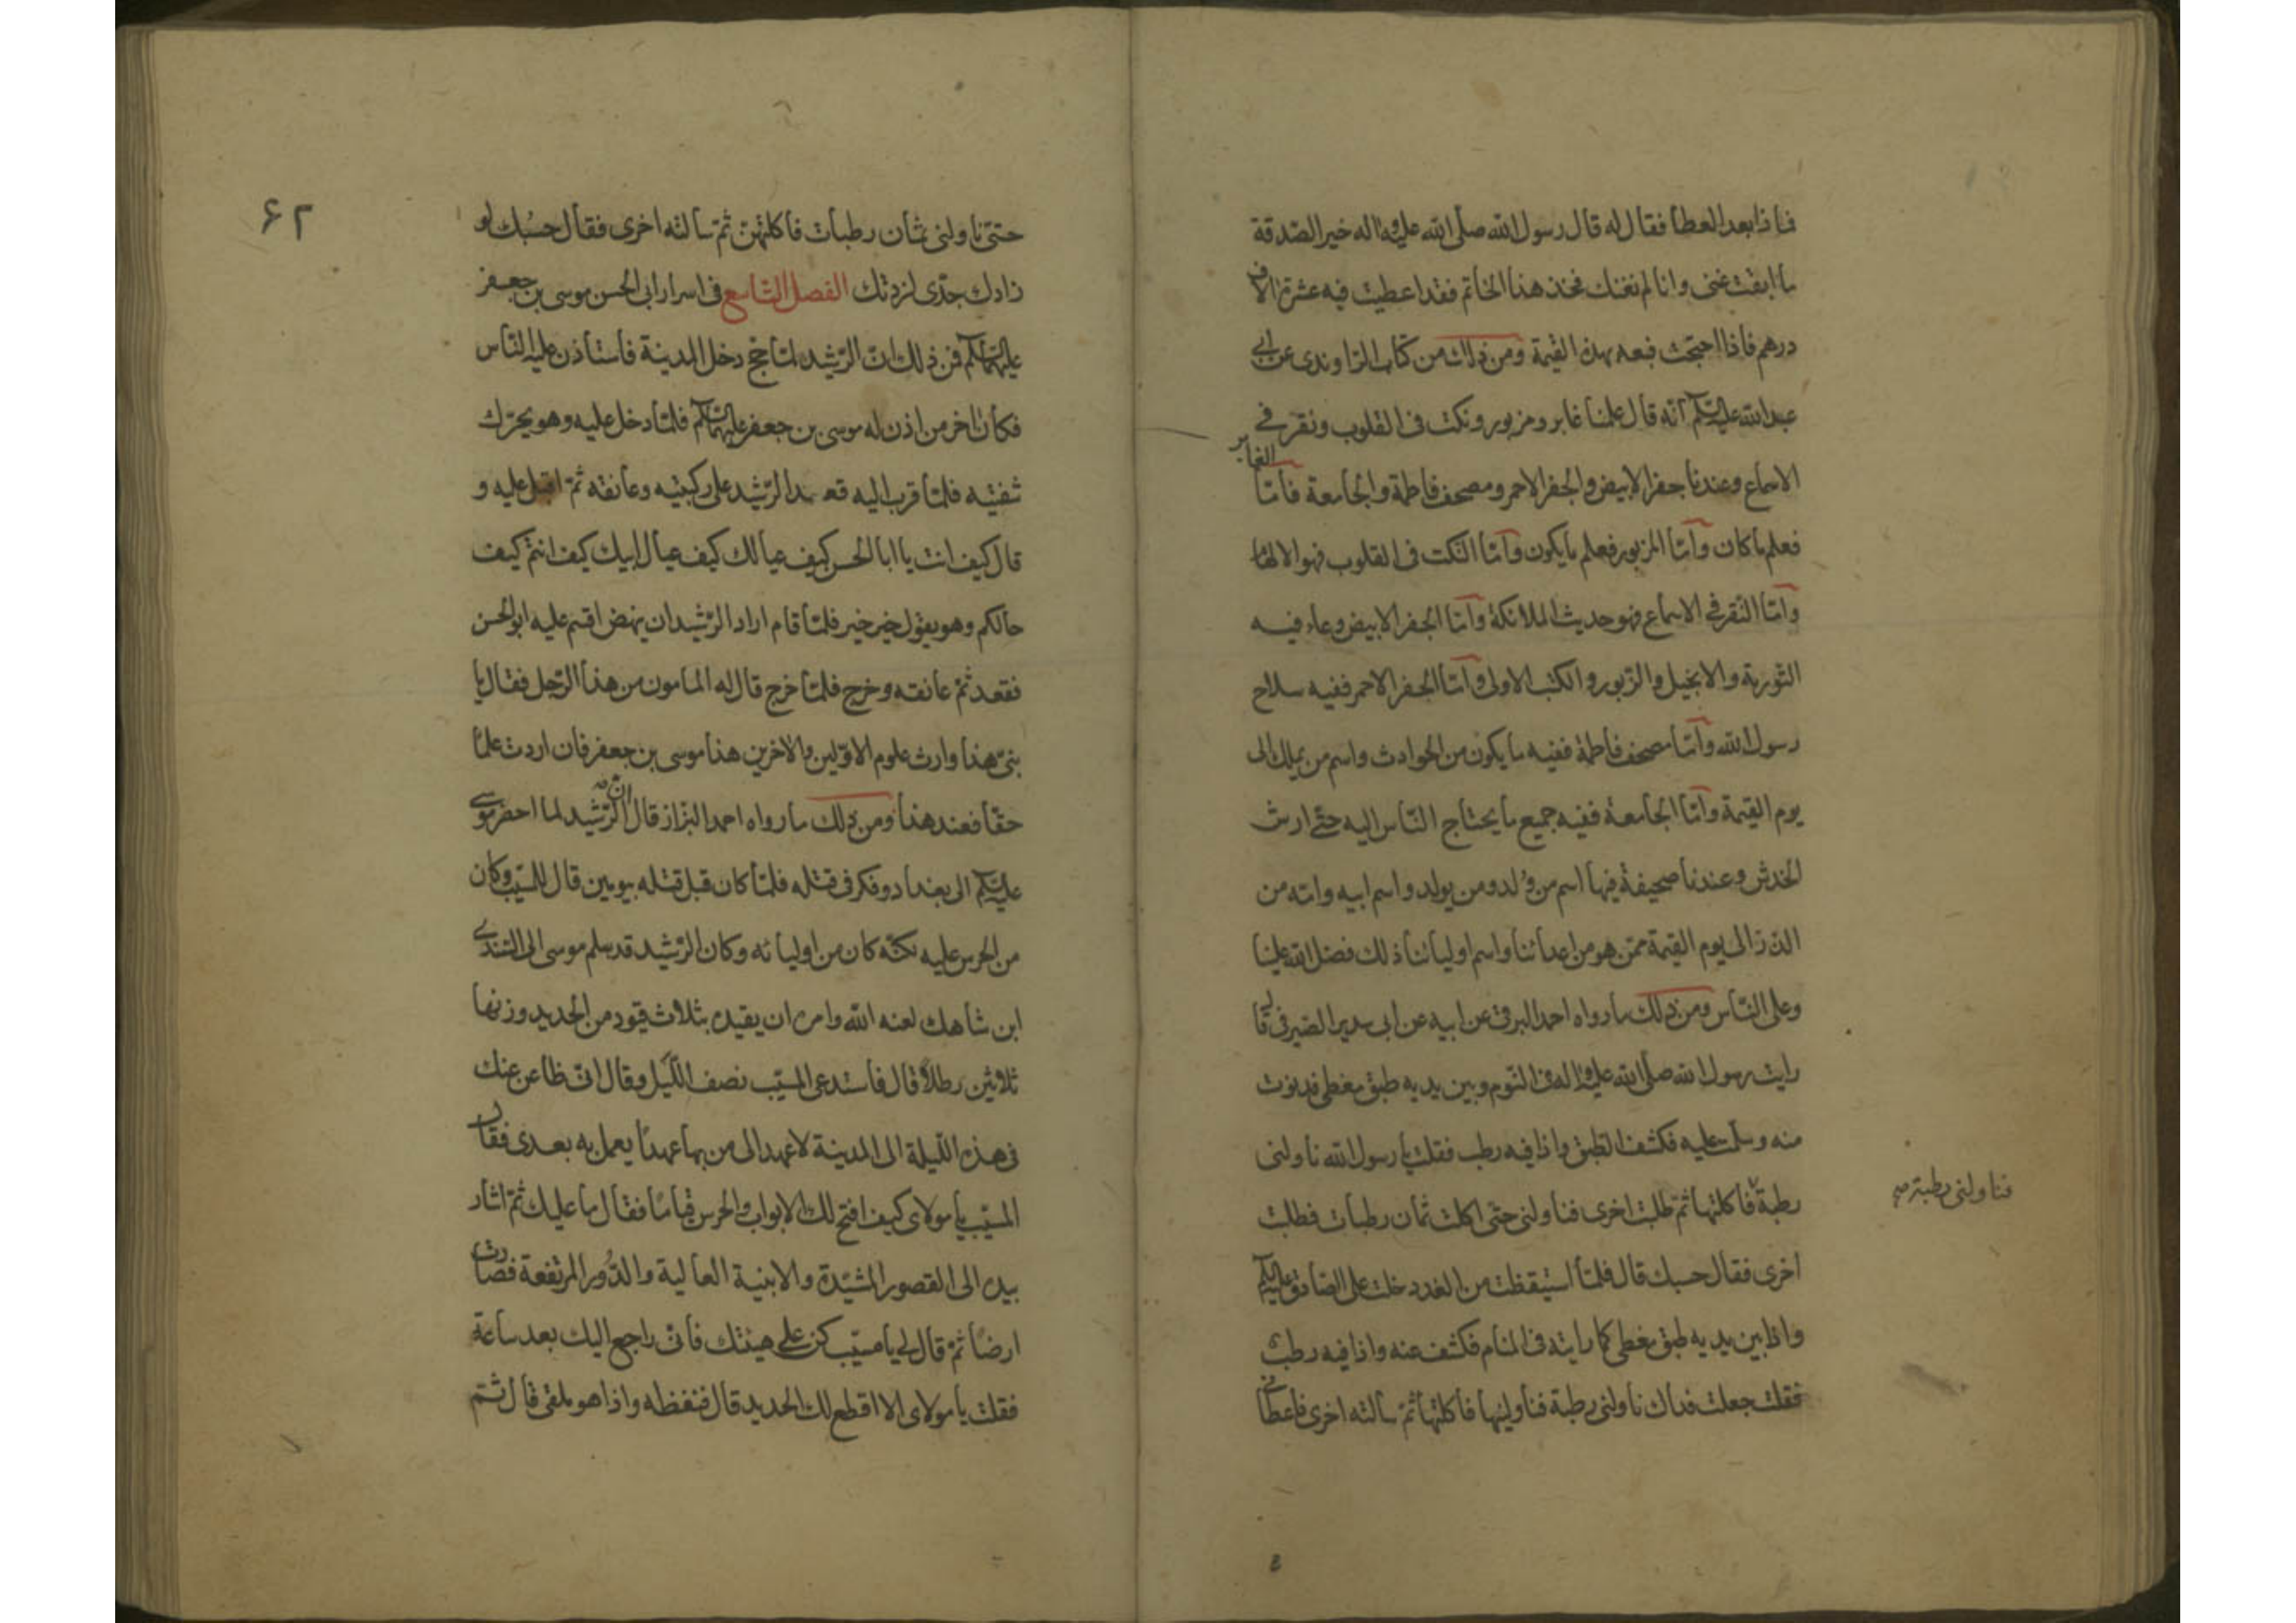 فماذا بعد العطا فقال له قال رسول الله صلى الله عليه واله خير الصدقة
ما ابقت غنى وانا لم نغنك فخذ هذا الخاتم فقد اعطيت فيه عشرة الاف
درهم فاذا احتجت فبعه بهذه القيمة ومن ذلك من كتاب الراوندى عن ابى
عبد الله عليه السلام انه قال علمنا غابر ومزبور ونكت فى القلوب ونقر فى
الاسماع وعندنا جفر الابيض والجفر الاحمر ومصحف فاطمة والجامعة فامّا
الغابر
فعلم ما كان وامّا المزبور فعلم ما يكون وامّا النكت فى القلوب فهو الالهام
وامّا النقر فى الاسماع فهو حديث الملائكة وامّا الجفر الابيض وعاء فيه
التورية والانجيل والزبور والكتب الاولى وامّا الجفر الاحمر ففيه سلاح
رسول الله وامّا مصحف فاطمة ففيه ما يكون من الحوادث واسم من يملك الى
يوم القيمة وامّا الجامعة ففيه جميع ما يحتاج النّاس اليه حتّى ارش
الخدش وعندنا صحيفة فيها اسم من وُلد ومن يولد واسم ابيه وامّه من
الذر الى يوم القيمة ممّن هو من اعدائنا واسم اوليائنا ذلك فضل الله علينا
وعلى النّاس ومن ذلك ما رواه احمد البرقى عن ابيه عن ابى سدير الصيرفى قال
رايت رسول الله صلى الله عليه واله فى النّوم وبين يديه طبق مغطى فدنوت
منه وسلمت عليه فكشف الطبق واذا فيه رطب فقلت يا رسول الله ناولنى
رطبة فاكلتها ثم طلبت اخرى فناولنى حتى اكلت ثمان رطبات فطلبت
فناولنى رطبة صح
اخرى فقال حسبك قال فلمّا استيقظت من الغد دخلت على الصّادق عليه السلام
واذا بين يديه طبق مغطى كما رايته فى المنام فكشف عنه واذا فيه رطب
فقلت جعلت فداك ناولنى رطبة فناولنيها فاكلتها ثم سالته اخرى فاعطانى
۶۲
حتىّ ناولنى ثمان رطبات فاكلتهنّ ثم سالته اخرى فقال حسُبك لو
زادك جدّى لزدتك الفصل التاسع فى اسرار ابى الحسن موسى بن جعفر
عليهما السلام فمن ذلك ان الرّشيد لمّا حج دخل المدينة فاستأذن عليه النّاس
فكان اخر من اذن له موسى بن جعفر عليهما السلام فلمّا دخل عليه وهو يحرّك
شفتيه فلمّا قرب اليه قعد الرّشيد على ركبتيه وعانقه ثمّ اقبل عليه و
قال كيف انت يا ابا الحسن كيف عيالك كيف عيال ابيك كيف انتم كيف
حالكم وهو يقول خير خير فلمّا قام اراد الرّشيد ان ينهض اقسم عليه ابو الحسن
فقعد ثمّ عانقه وخرج فلمّا خرج قال له المامون من هذا الرّجل فقال يا
بنىّ هذا وارث علوم الاوّلين والاخرين هذا موسى بن جعفر فان اردت علمًا
حقّا فعند هذا ومن ذلك ما رواه احمد البزاز قال انّ الرّشيد لما احضر موسى
عليه السلام الى بغداد وفكر فى قتله فلمّا كان قبل قتله بيومين قال للمسيّب وكان
من الحرس عليه لكنّه كان من اوليائه وكان الرّشيد قد سلم موسى الى السّندى
ابن شاهك لعنه الله وامره ان يقيده بثلاث قيود من الحديد وزنها
ثلاثين رطلاً قال فاستدعى المسيّب نصف اللّيل وقال انّى ظاعن عنك
فى هذه اللّيلة الى المدينة لاعهد الى من بها عهدًا يعمل به بعدى فقال
المسيّب يا مولاى كيف افتح لك الابواب والحرس قيامًا فقال ما عليك ثمّ اشار
بيده الى القصور المشيّدة والابنية العالية والدّور المرتفعة فصارت
ارضًا ثمّ قال لى يا مسيّب كن على هيئتك فانّى راجع اليك بعد ساعة
فقلت يا مولاى الا اقطع لك الحديد قال فنفضه واذا هو ملقى قال ثمّ